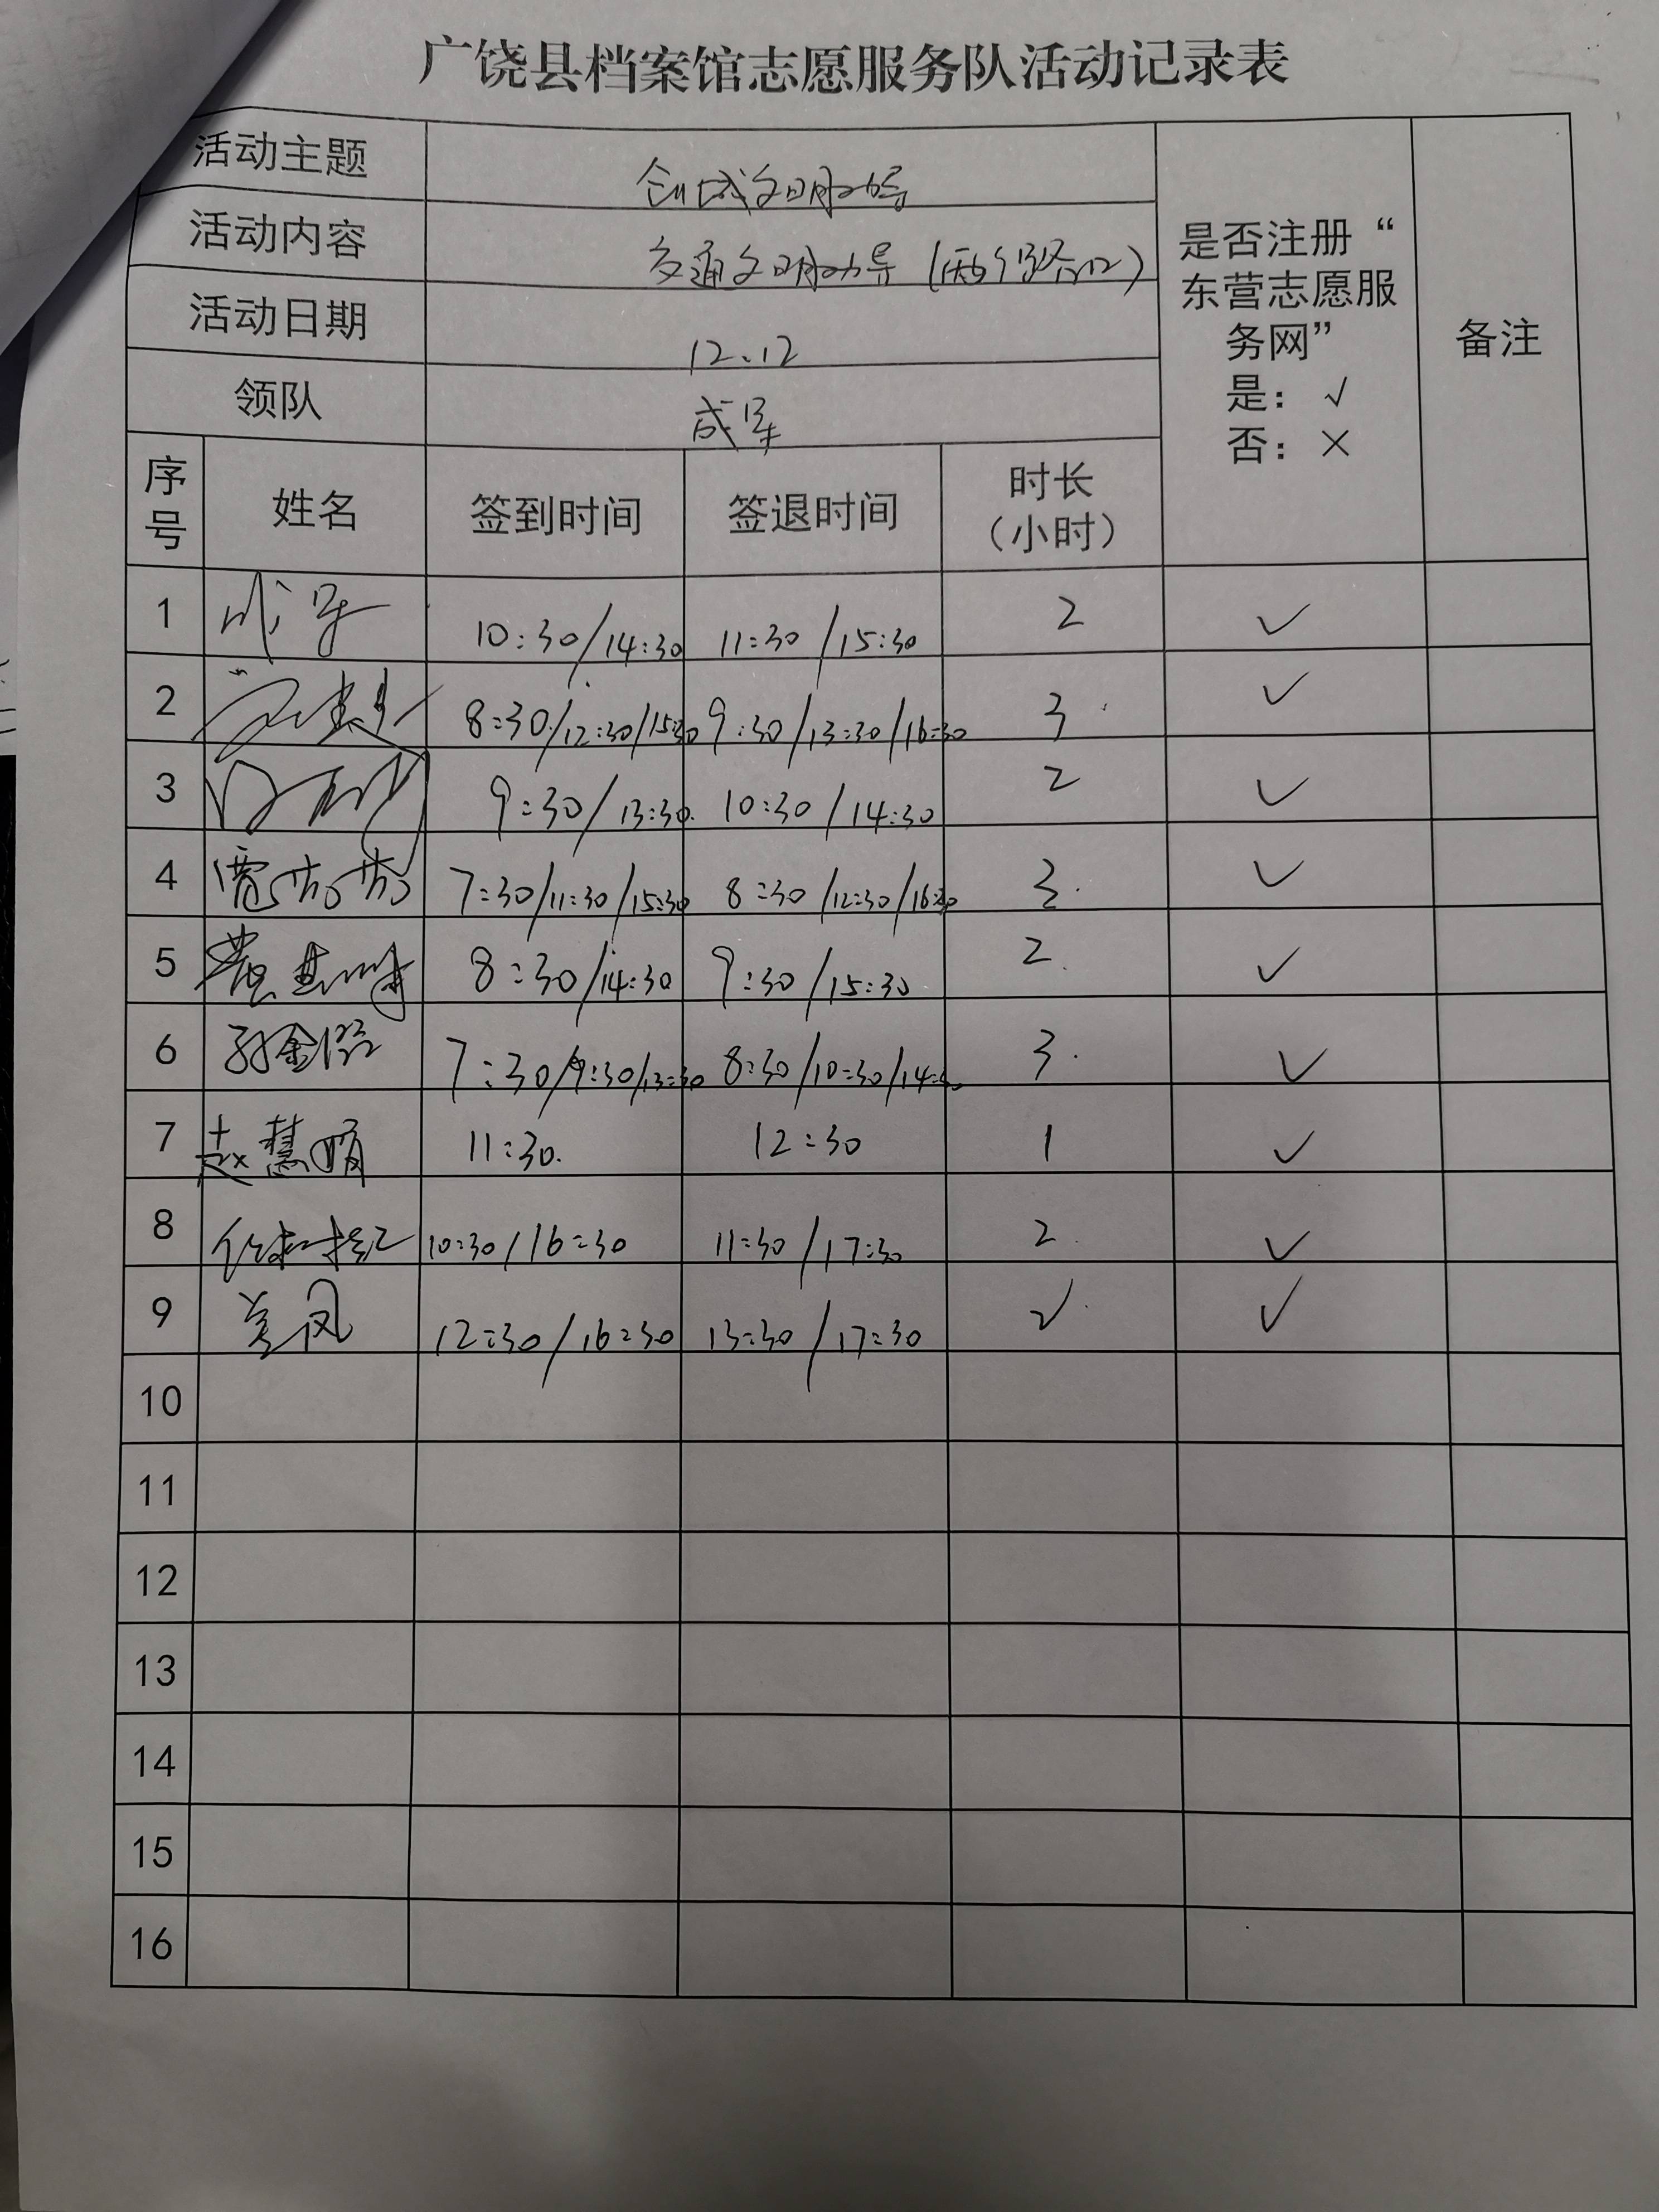 广饶县档案馆志愿服务队活动记录表
活动主题 创城文明劝导
活动内容 交通文明劝导（两个路口）
活动日期 12.12
领队 成军
是否注册“
东营志愿服
务网”
是：√
否：×
备注
序号 姓名 签到时间 签退时间 时长（小时）
1 成军 10:30/14:30 11:30/15:30 2 ✓
2 8:30/12:30/15:30 9:30/13:30/16:30 3 ✓
3 9:30/13:30 10:30/14:30 2 ✓
4 7:30/11:30/15:30 8:30/12:30/16:30 3 ✓
5 8:30/14:30 9:30/15:30 2 ✓
6 7:30/9:30/13:30 8:30/10:30/14:30 3 ✓
7 赵慧娟 11:30 12:30 1 ✓
8 10:30/16:30 11:30/17:30 2 ✓
9 12:30/16:30 13:30/17:30 ✓
10
11
12
13
14
15
16